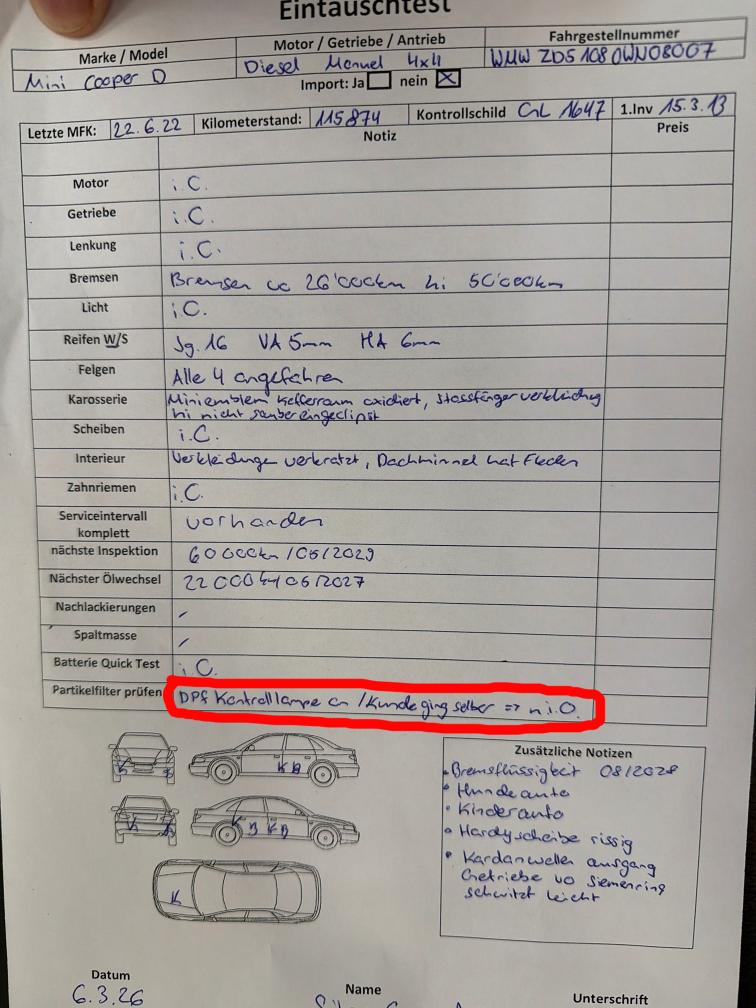 Eintauschtest
Marke / Model
Motor / Getriebe / Antrieb
Fahrgestellnummer
Mini Cooper D
Diesel Manuel 4x4
WMW ZD5 1080WN08007
Import: Ja nein
Letzte MFK: 22.6.22 Kilometerstand: 115874 Kontrollschild GL 1647 1.Inv 15.3.13
Notiz Preis
Motor i.O.
Getriebe i.O.
Lenkung i.O.
Bremsen Bremsen vo 26'000km hi 50'000km
Licht i.O.
Reifen W/S Jg. 16 VA 5mm HA 6mm
Felgen Alle 4 angefahren
Karosserie Miniemblem Kofferraum oxidiert, Stossfängerverkleidung
hi nicht sauber eingeclipst
Scheiben i.O.
Interieur Verkleidungen verkratzt, Dachhimmel hat Flecken
Zahnriemen i.O.
Serviceintervall
komplett vorhanden
nächste Inspektion 60000km /06/2029
Nächster Ölwechsel 22000km 06/2027
Nachlackierungen /
Spaltmasse /
Batterie Quick Test i.O.
Partikelfilter prüfen DPF Kontrollampe an / Kunde ging selber => n.i.O.
K K
K B
K K
K B K B
K
Zusätzliche Notizen
• Bremsflüssigkeit 08/2028
• Hundeauto
• Kinderauto
• Hardyscheibe rissig
• Kardanwellen ausgang
Getriebe vo Siemenring
schwitzt leicht
Datum
6.3.26
Name
Unterschrift